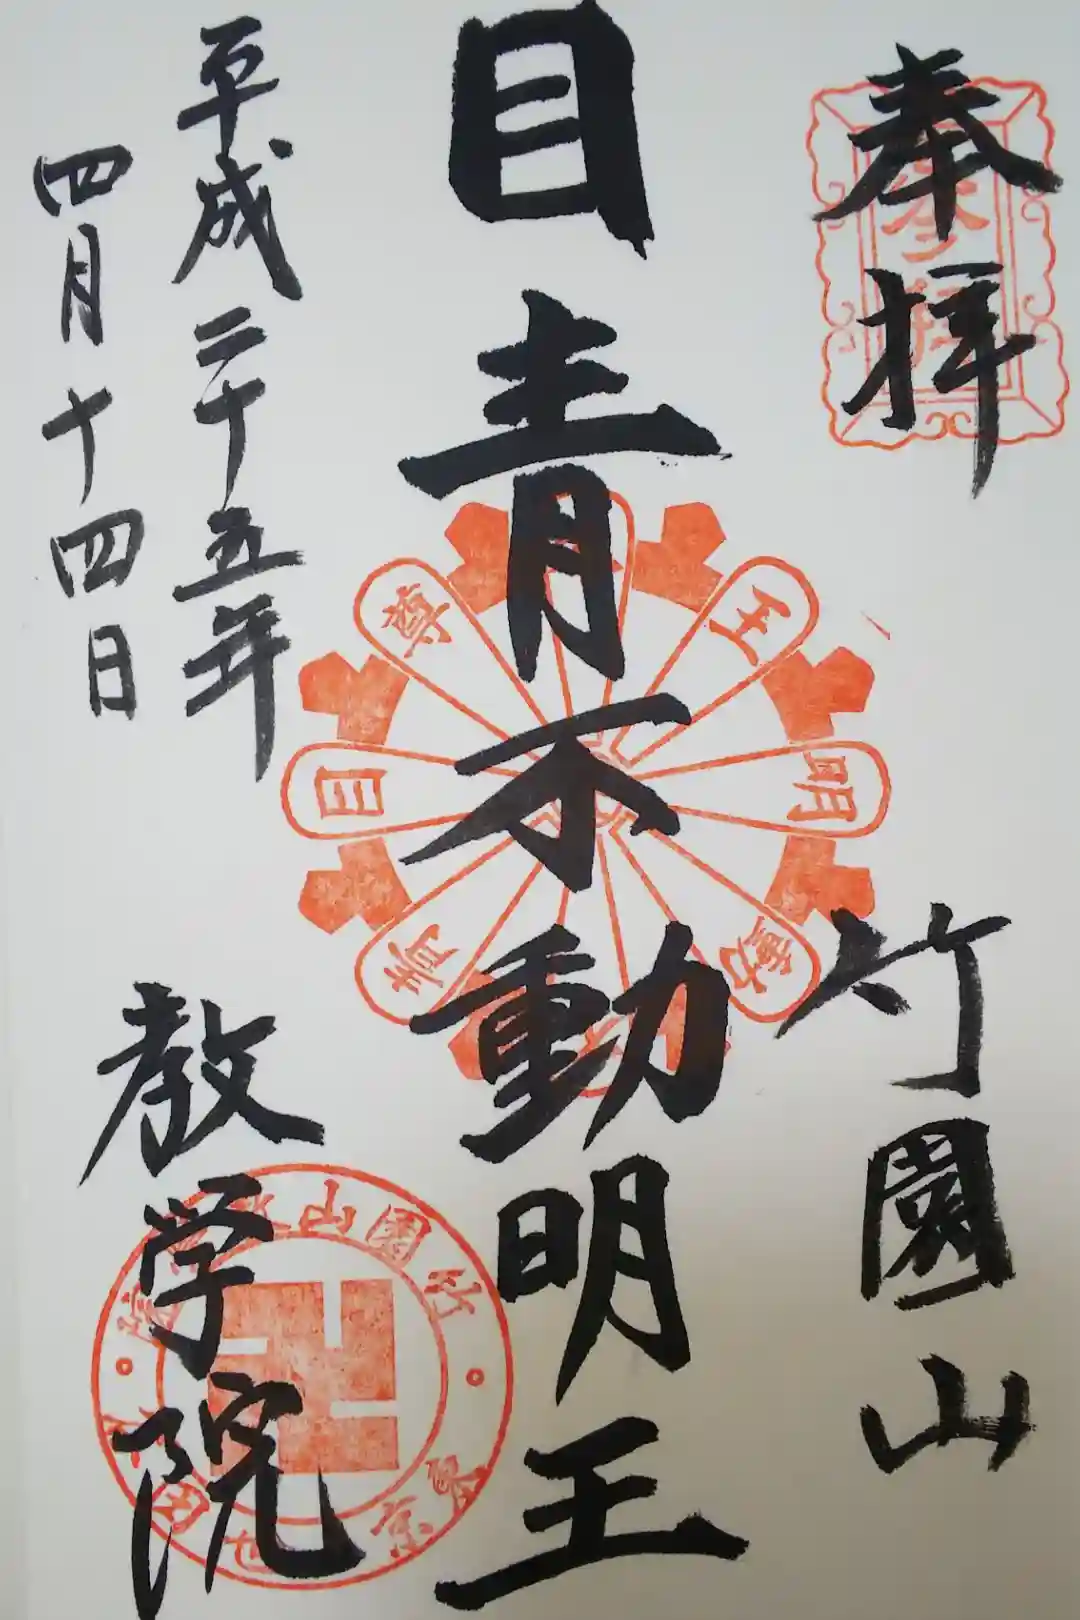 奉拝
竹園山
目青不動明王
教学院
平成二十五年
四月十四日
王
明
動
尊
目
青
竹園山
東京